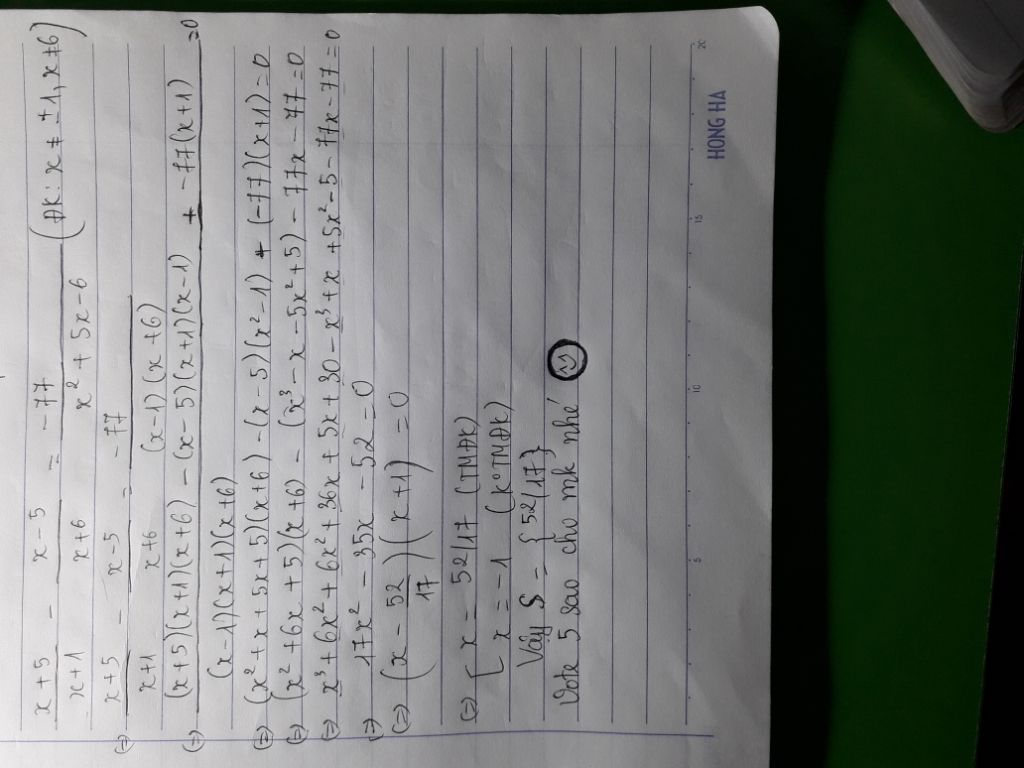 x+5/x+1 - x-5/x+6 = -77/x²+5x-6 (ĐK: x ≠ ±1, x≠6)
(=) x+5/x+1 - x-5/x+6 = -77/(x-1)(x+6)
(=) (x+5)(x+1)(x+6) - (x-5)(x+1)(x-1) + -77(x+1)/(x-1)(x+1)(x+6) =0
(=) (x²+x+5x+5)(x+6) - (x-5)(x²-1) + (-77)(x+1)=0
(=) (x²+6x+5)(x+6) - (x³-x-5x²+5) - 77x-77=0
(=) x³+6x²+6x²+36x+5x+30-x³+x+5x²-5-77x-77=0
(=) 17x²-35x-52=0
(=) (x - 52/17)(x+1)=0
(=) [ x = 52/17 (TMĐK)
[ x = -1 (K°TMĐK)
Vậy S = {52/17}
Vote 5 sao cho mk nhé
HONG HA
5 10 15 20